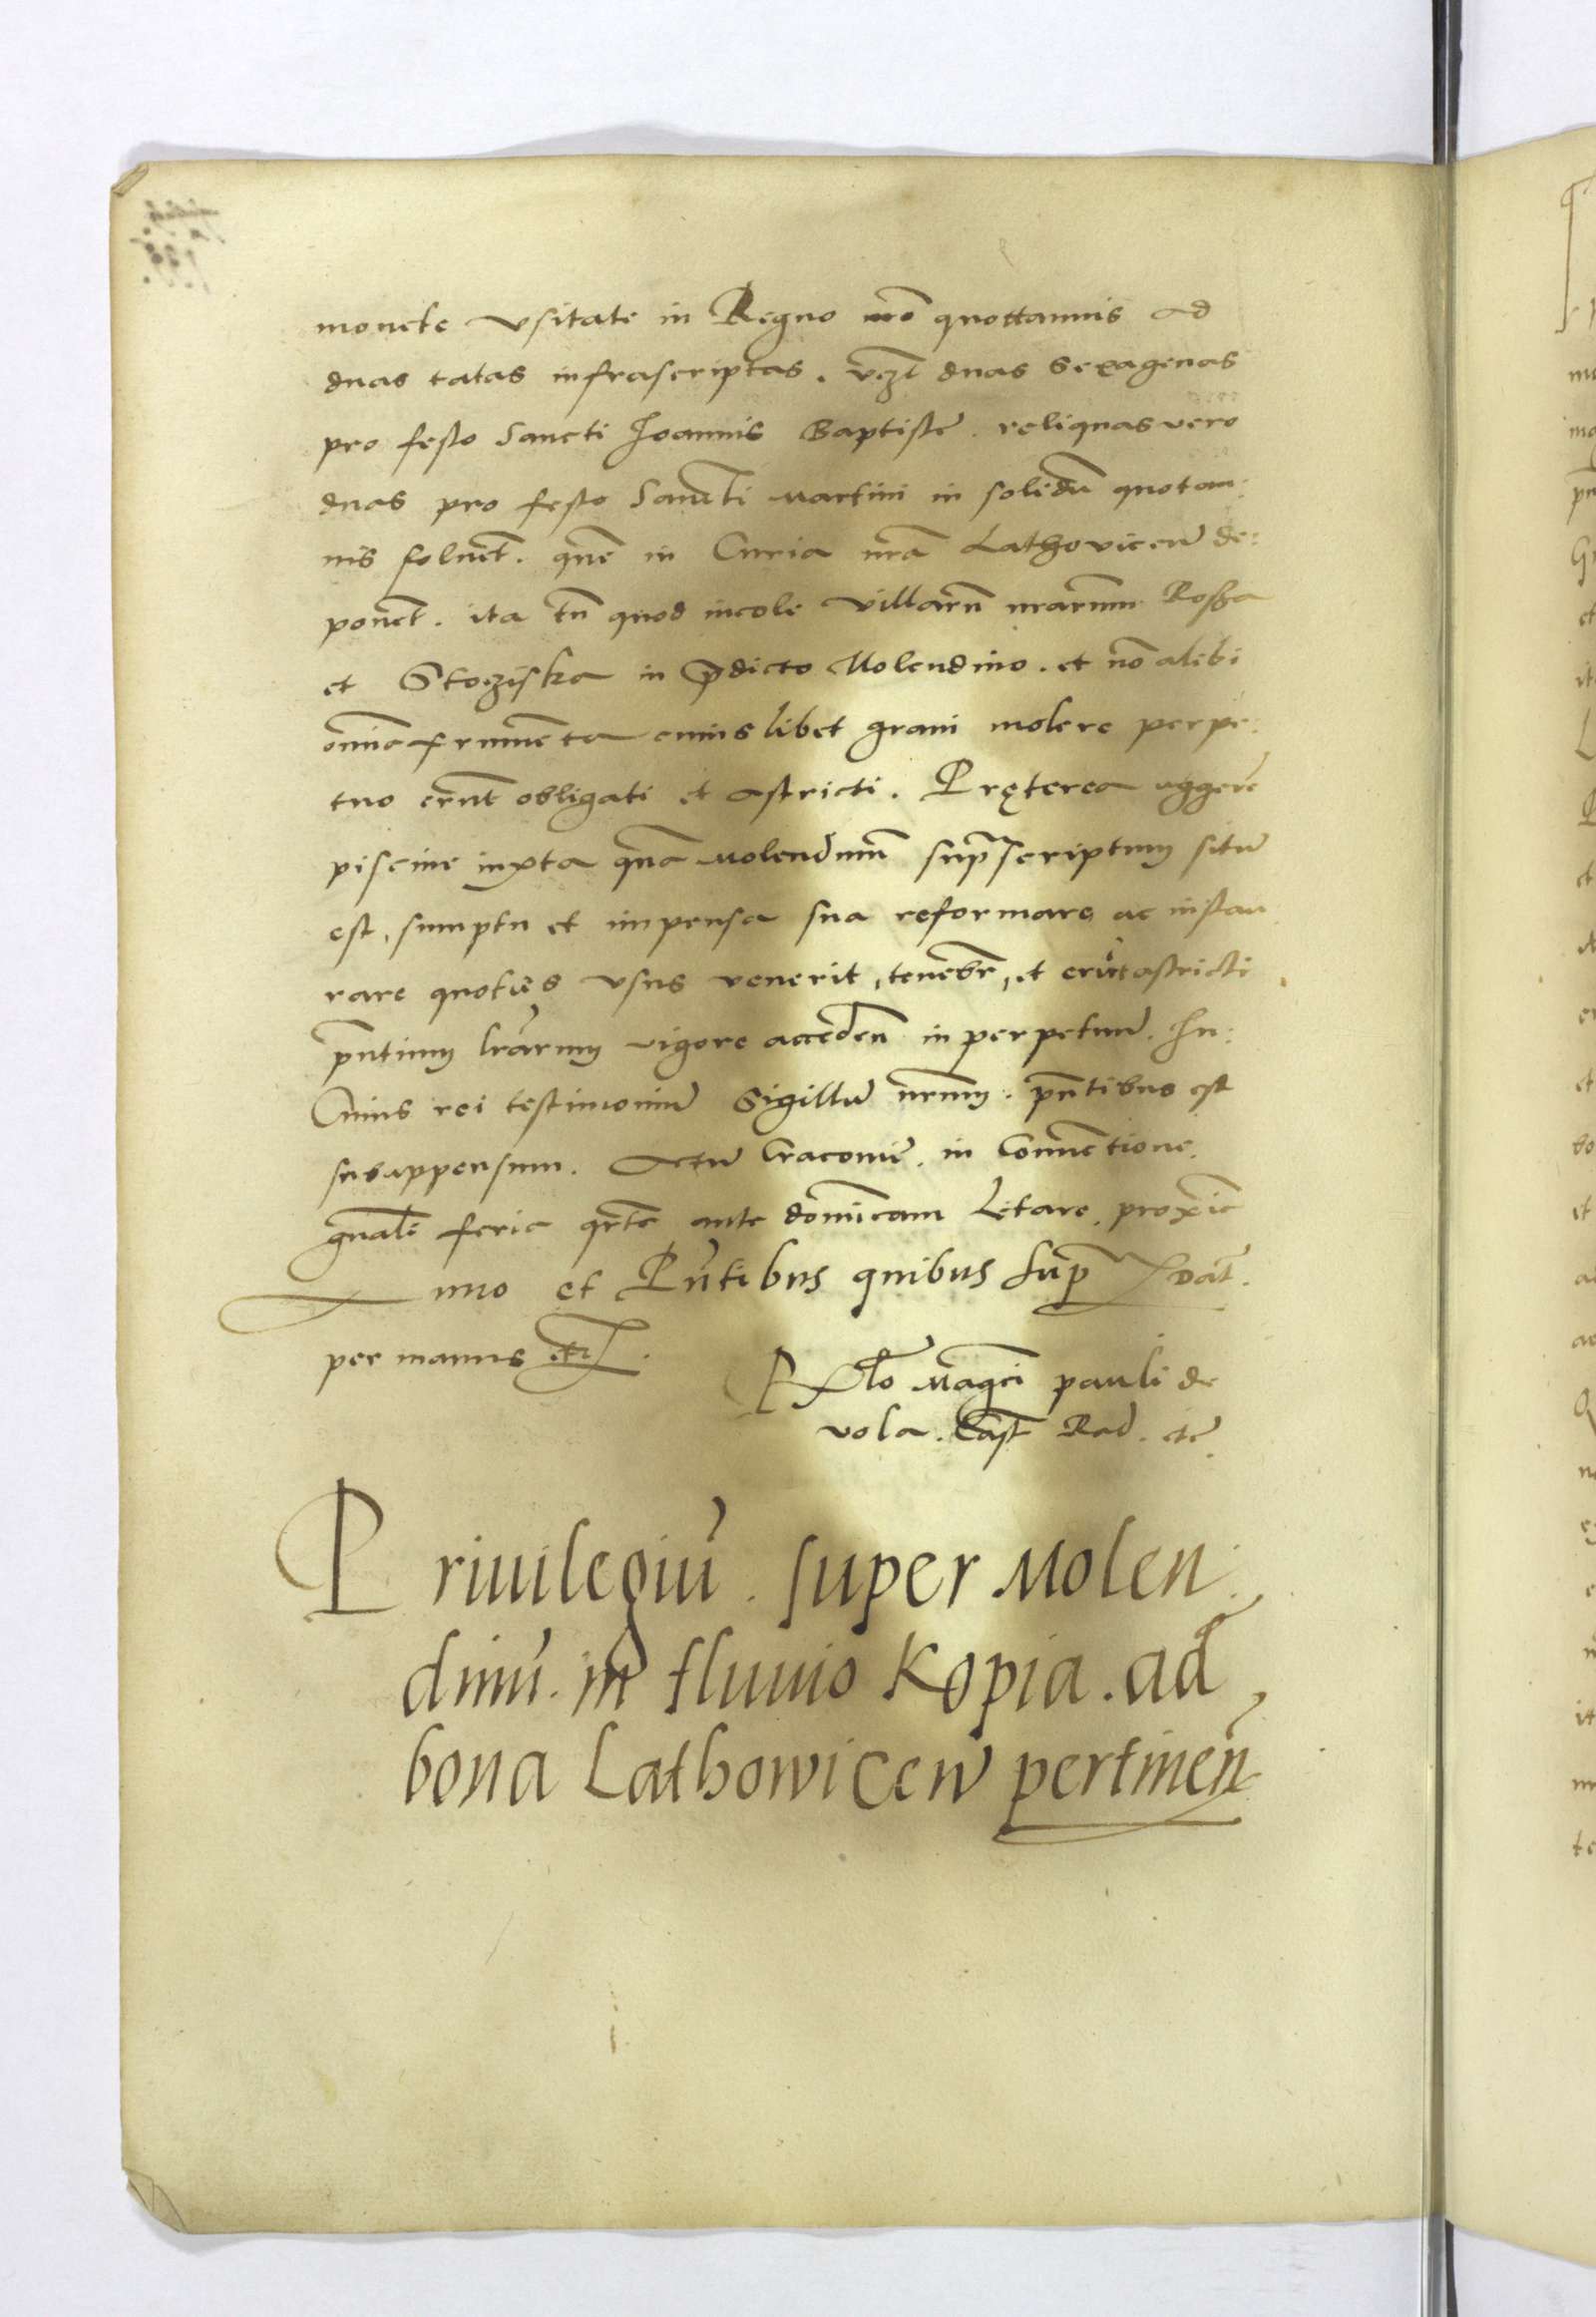 monete vsitate in Regno nr̄o quottannis ad
duas ratas infrascriptas. vz̄t duas sexagenas
pro festo Sancti Joannis Baptiste. reliquas vero
duas pro festo Sancti Martini in solidū quotan:
nis soluēt. que in Curia nr̄a Lathovicen̄ de:
ponēt. ita tn̄ quod incole villarū nrarum Rosga
et Stoziska in p̄dicto Molendino. et nō alibi
omīa frumēta cuiuslibet grani molere perpe:
tuo erūt obligati et astricti. Pręterea aggerē
piscine iuxta quā Molendinū supra scriptum sitū
est, sumptu et impensa sua reformare ac instau
rare quotiēs vsus venerit, tenebr̄, et erūt astricti
pn̄tium lr̄arum vigore acceden̄ in perpetuū. In:
Cuius rei testimoniū Sigillū nrm̄. pn̄tibus est
subappensum. Actū Cracouie. in Conuētione.
gnāli feria qr̄ta ante domīcam Letare. proxīa
nno et Pn̄tibus quibus supra Dat̄.
per manus etc.
Rl̄o Mag̃ci pauli de
vola. Cast̄ Rad. etc̄.
Priuilegiū. super Molen
dinū. in fluuio Kopia. ad
bona Lathowicen̄ pertinen̄